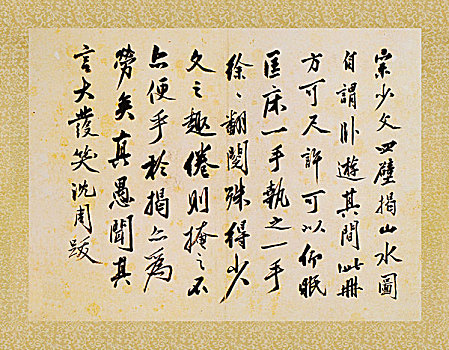 宗少文四壁揭山水圖
自謂卧遊其間此冊
方可尺許可以仰眠
匡床一手執之一手
徐〻翻閱殊得少
文之趣倦則掩之不
亦便乎於揭亦為
勞矣真愚聞其
言大發笑沈周跋